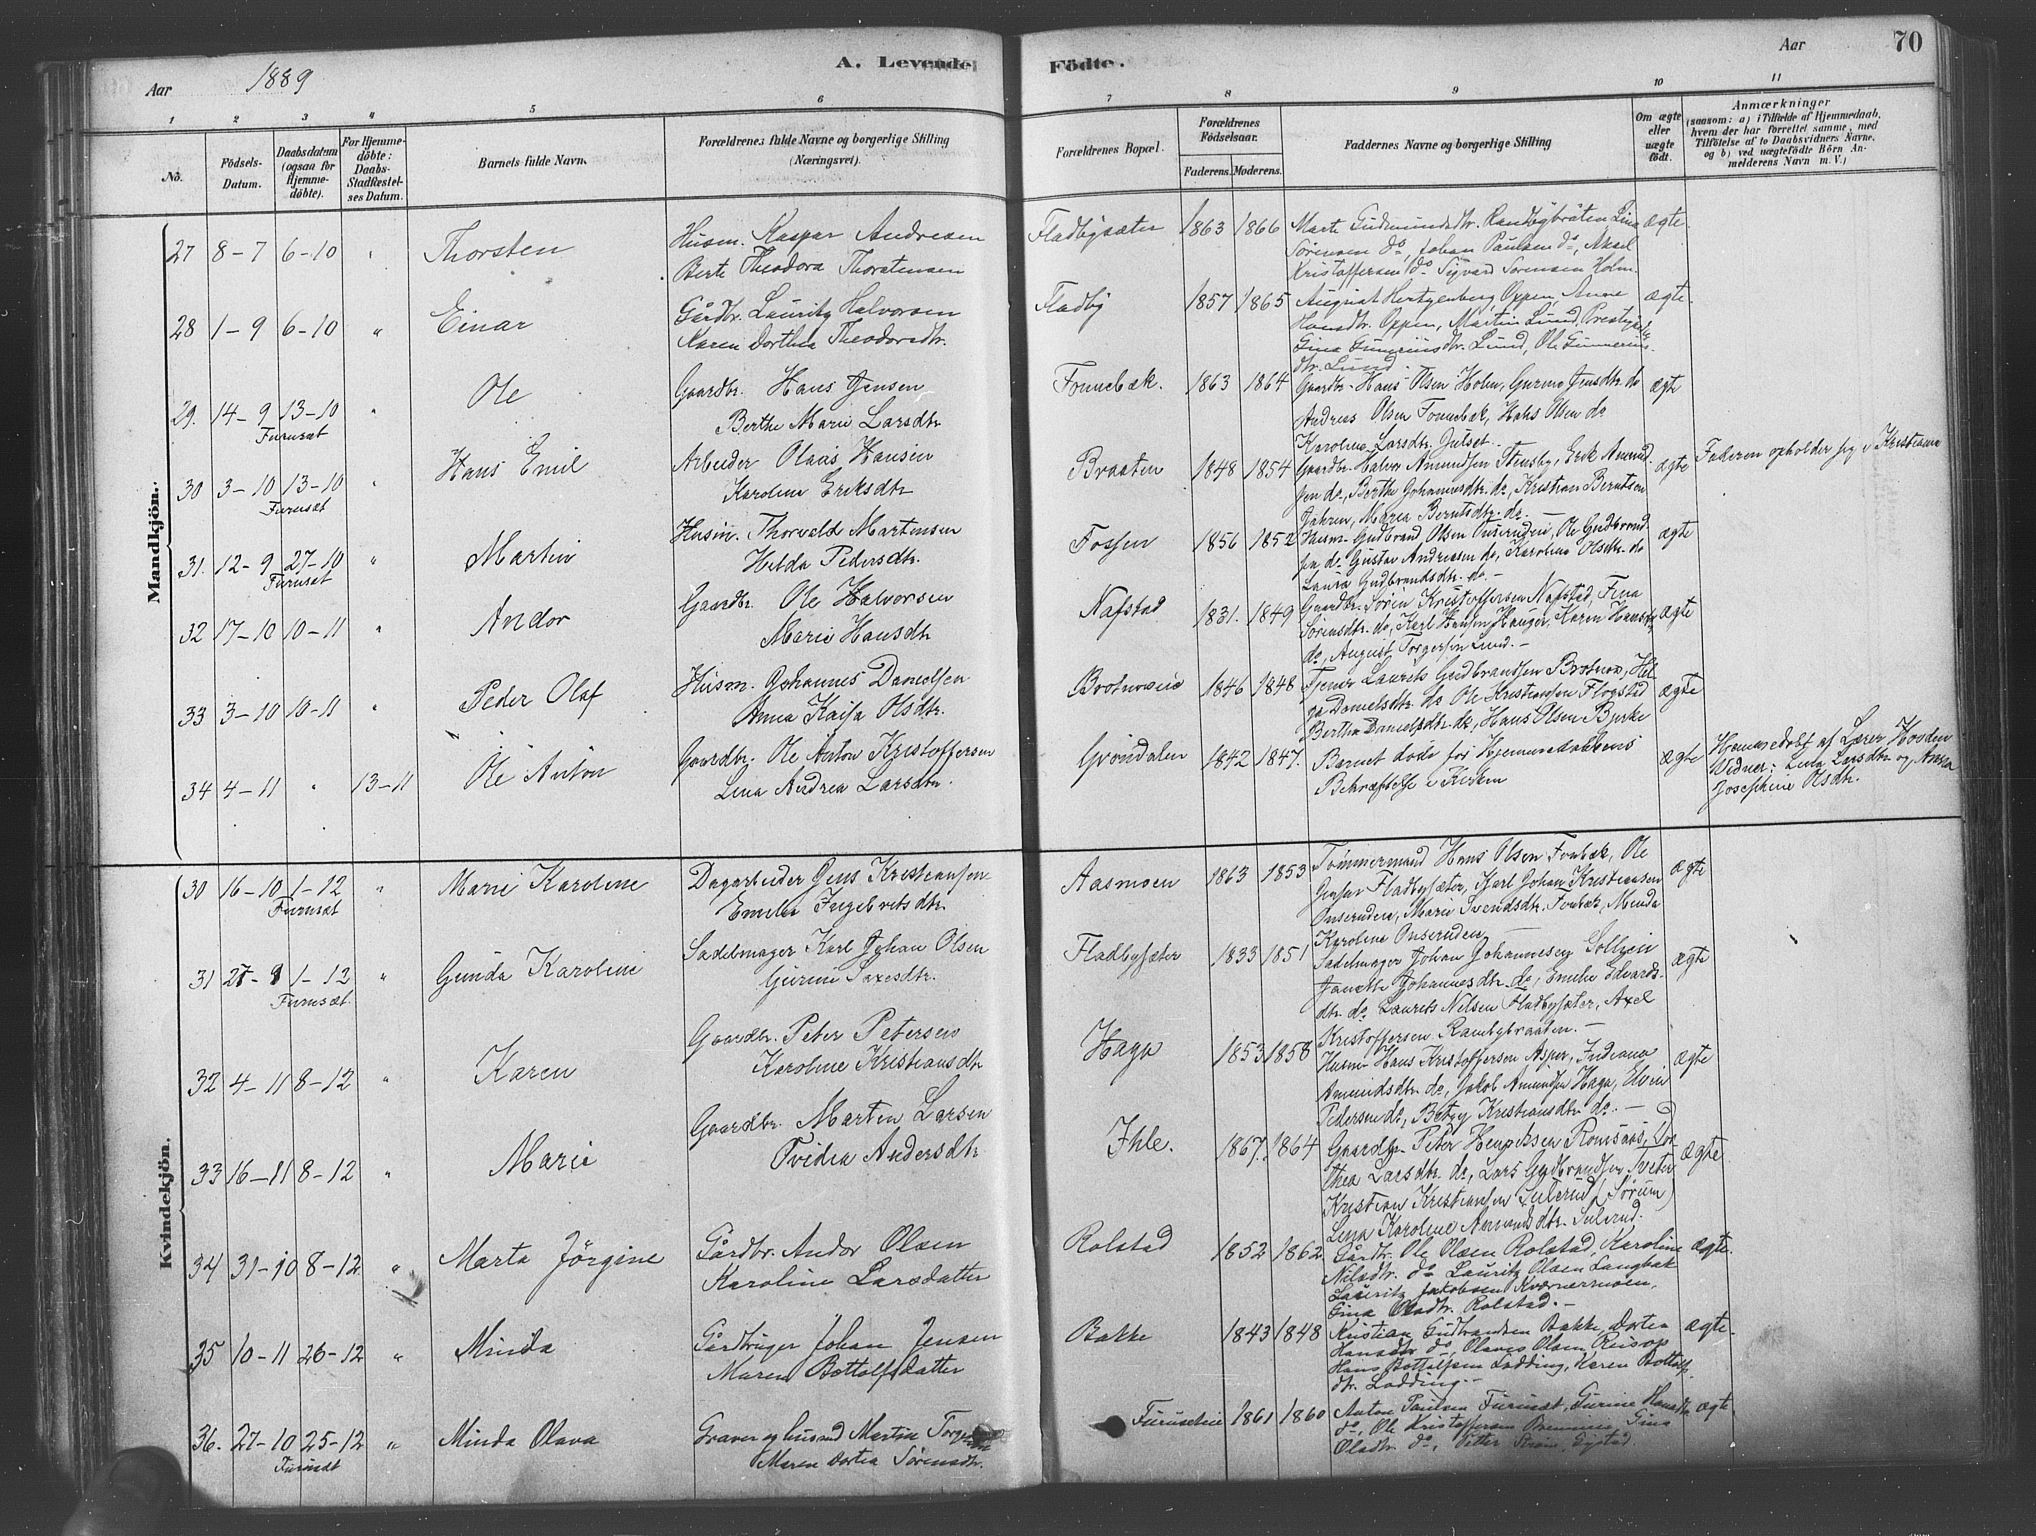 Aar 1889 A. Levende Födte. Aar 70
1 2 3 4 5 6 7 8 9 10 11
No. Födsels-Datum. Daabsdatum (ogsaa for Hjemmedöbte). For Hjemmedöbte: Daabs-Stadfestelses Datum. Barnets fulde Navn. Forældrenes fulde Navne og borgerlige Stilling (Næringsvei). Forældrenes Bopæl. Forældrenes Födselsaar. Faderens. Moderens. Faddernes Navne og borgerlige Stilling Om ægte eller uægte födt. Anmærkninger (saasom: a) i Tilfælde af Hjemmedaab, hvem der har forrettet samme, med Tilföielse af to Daabsvidners Navne, og b) ved uægtefödte Börn Anmelderens Navn m. V.)
Mandkjön.
27 8-7 6-10 " Thorsten Husm. Kaspar Andresen Fladbysæter 1863 1866 Marte Gudmundsdtr. Randbybråten, Lina ægte
Berte Theodora Thorstensen Sörensen do, Johan Paulsen do, Aksel
Kristoffersen do Sigvard Sörensen Holm.
28 1-9 6-10 " Einar Gårdbr. Lauritz Halvorsen Fladby 1857 1865 August Hertzenberg, Oppen, Anne ægte
Karen Dorthea Theodorsdtr. Hansdtr. Oppen, Martin Lund,
Gina Gunneriusdtr. Lund, Ole Gunnerius-
dtr. Lund
29. 14-9 13-10 " Ole Gaardbr. Hans Jensen Fonnebæk. 1863 1864 Gaardbr. Hans Olsen Holm, Gurine Jensdtr do ægte
Furuset Berthe Marie Larsdtr Andreas Olsen Fonnebæk, Hans Olsen do
Karoline Larsdtr. Julset.
30 3-10 13-10 " Hans Emil Arbeider Olaus Hansen Braaten 1848 1854 Gaardbr. Halvor Amundsen Stensby, Erik Amund- ægte Faderen opholder sig i Kristiania
Furuset Karoline Eriksdtr sen do, Berthe Johannesdtr. do, Kristian Berntsen
Jahren, Maria Berntsdtr. do.
31. 12-9 27-10 " Martin Husm. Thorvald Martinsen Fossen 1856 1852 Husm. Gudbrand Olsen Onseruden, Ole Gudbrand- ægte
Furuset Helda Pedersdtr. sen do Gustav Andreasen do, Karoline Olsdtr. do
Laura Gudbrandsdtr. do.
32 17-10 10-11 " Andor Gaardbr. Ole Halvorsen Nafstad 1831. 1849 Gaardbr. Sören Kristoffersen Nafstad, Fina ægte
Marie Hansdtr Sörensdtr. do, Karl Hansen Hauger, Karen Hansdtr
do, August Torgersen Lund.
33 3-10 10-11 " Peder Olaf Husm. Johannes Danielsen Brotnoseie 1846 1848 Tjener Laurits Gudbrandsen Brotnos, Hel- ægte
Anna Kajsa Olsdtr. ga Danielsdtr. do Ole Kristiansen Flogstad
Berthe Danielsdtr. do, Hans Olsen Bjerke
34 4-11 " 13-11 Ole Anton Gaardbr. Ole Anton Kristoffersen Gröndalen 1842 1847. Barnet döde för Hjemmedaabens ægte Hjemmedöbt af Lærer Hosden
Lina Andrea Larsdtr. Bekræftelse i Kirken Vidner: Lina Larsdtr og Anna
Josephine Olsdtr.
Kvindekjön.
30 16-10 1-12 " Marie Karoline Dagarbeider Jens Kristiansen Aasmoen 1863 1853 Tömmermand Hans Olsen Fonbæk, Ole ægte
Furuset Emilie Ingebretsdtr Jensen Fladbysæter, Karl Johan Kristiansen
Onseruden, Marie Svendsdtr. Fonbæk, Minda
Karoline Onseruden
31 27-9 1-12 " Gunda Karoline Sadelmager Karl Johan Olsen Fladbysæter 1833 1851 Sadelmager Johan Johannesen Solheim ægte
Furuset. Gurine Saxesdtr. Janette Johannesdtr. do, Emilie Edvards-
dtr. do Laurets Nilsen Fladbysæter, Axel
Kristoffersen Rambybraaten.
32 4-11 8-12 " Karen Gaardbr. Peter Petersen Haga 1853 1858 Husm. Hans Kristoffersen Asper, Indiana ægte
Karoline Kristiansdtr Amundsdtr. do, Jakob Amundsen Haga, Edvin
Pedersen do, Betzy Kristiansdtr. do.
33 16-11 8-12 " Marie Gaardbr. Martin Larsen Ihle. 1867. 1864 Gaardbr. Peter Henriksen Romsaas, Do- ægte
Ovidia Andersdtr thea Larsdtr. do, Lars Gudbrandsen Tveter
Kristian Kristiansen Sulerud (Sörum)
Lina Karoline Amundsdtr. Sulerud.
34 31-10 8-12 " Marta Jörgine Gårdbr. Andor Olsen Rolstad 1852 1862 Gårdbr. Ole Olsen Rolstad, Karoline ægte
Karoline Larsdatter Nilsdtr. do Lauritz Olsen Langbak
Lauritz Jakobsen Kværnermoen,
Gina Olsdtr. Rolstad.
35 10-11 26-12 " Minda Gårdbruger Johan Jensen Bakke 1843 1848 Kristian Gudbrandsen Bakke Dortea ægte
Maren Bottolfsdatter Hansdtr do, Olaves Olsen Reisop
Hans Bottolfsen Lodding, Karen Bottolfs-
dtr. Lodding.
36. 27-10 25-12 " Minda Olava Graver og husmd Martin Torgersen Furuseteie 1861 1860 Anton Paulsen Furuset, Gurine Hansdtr ægte
Furuset Maren Dortea Sörensdtr. do, Ole Kristoffersen Gina
Olsdtr. do, Petter Ström,